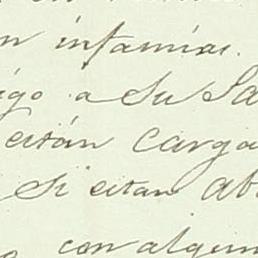 n infamias.
igo a Su Sa
están carga
Si estan ab
con algun